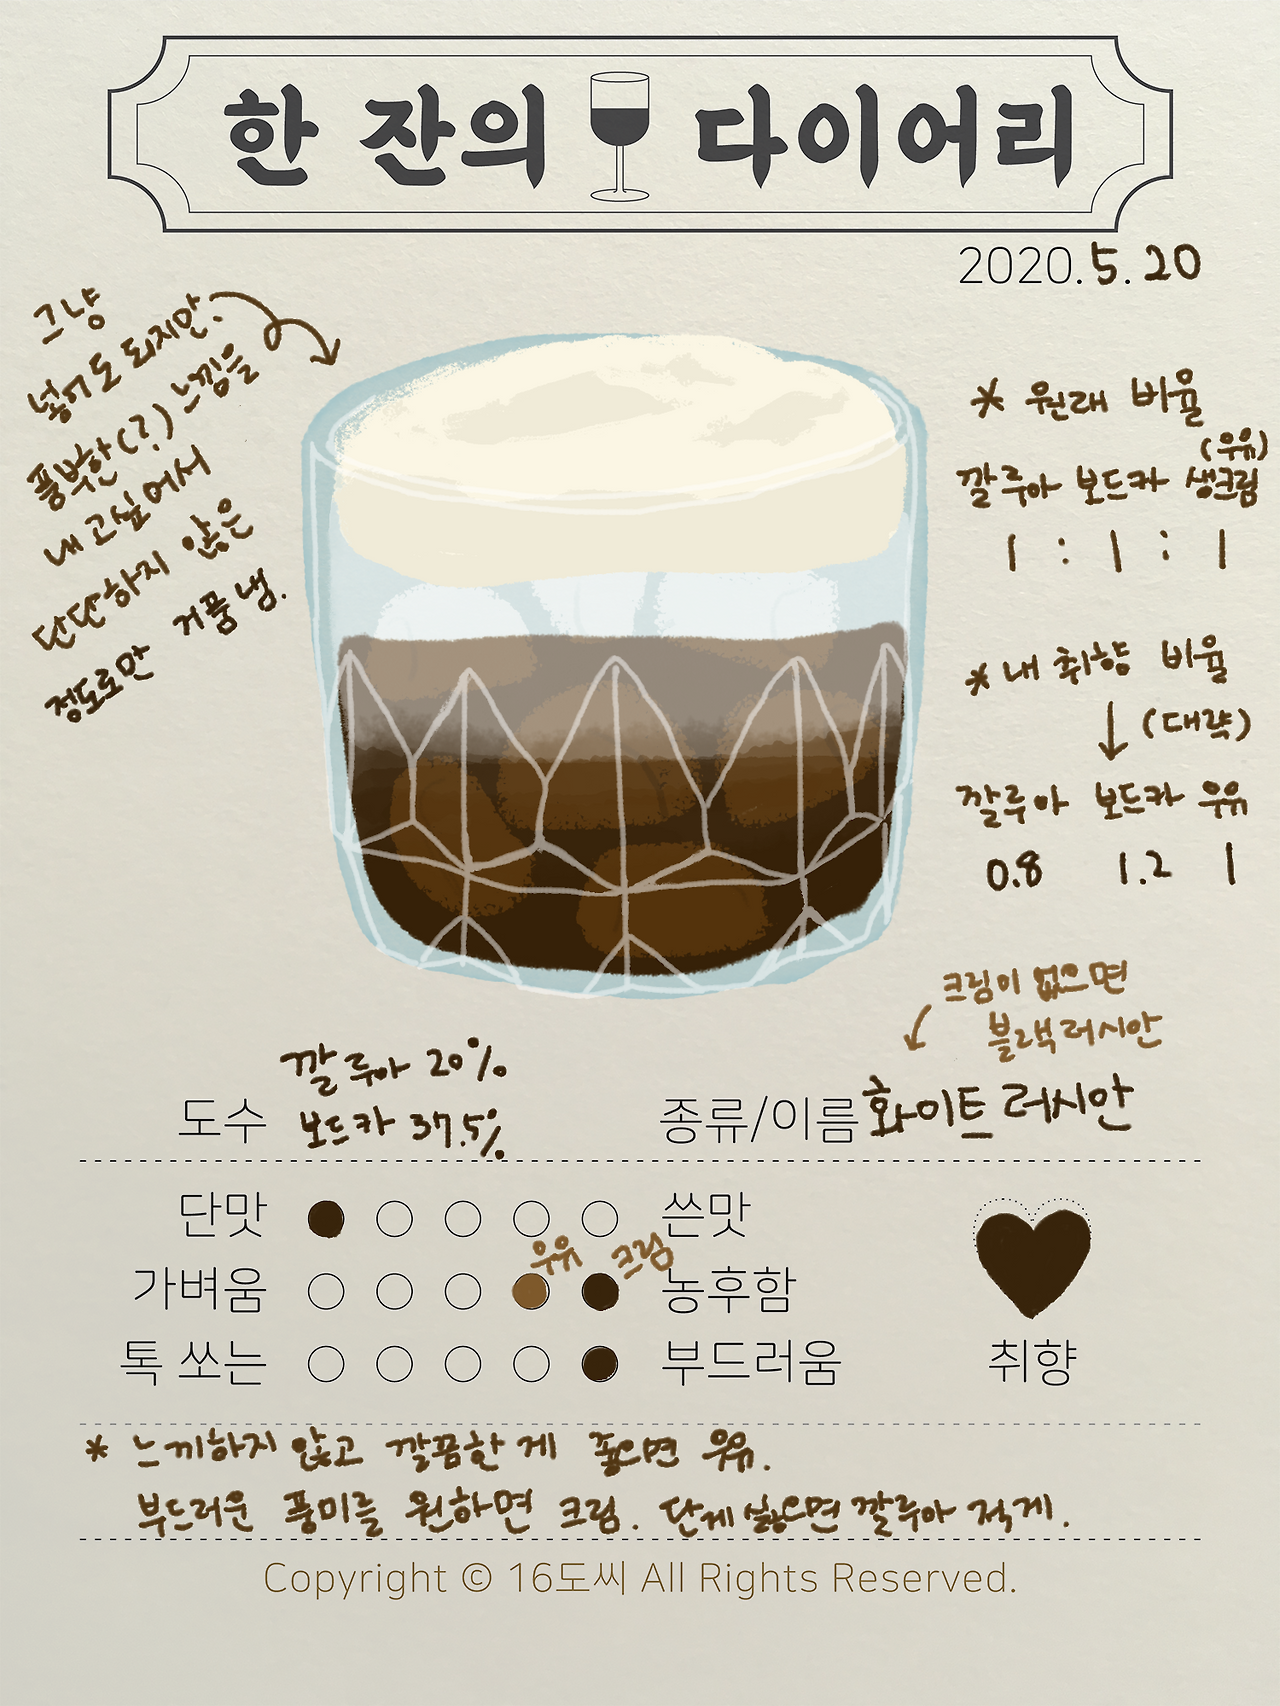 한 잔의 다이어리
2020.5.20
그냥
넣어도 되지만.
풍부한(?) 느낌을
내고싶어서
단단하지 않은
정도로만 거품 냄.
* 원래 비율
(우유)
깔루아 보드카 생크림
1 : 1 : 1
* 내 취향 비율
↓ (대략)
깔루아 보드카 우유
0.8 1.2 1
크림이 없으면
블랙러시안
도수 깔루아 20%
보드카 37.5%
종류/이름 화이트 러시안
단맛 쓴맛
우유 크림
가벼움 농후함
톡 쏘는 부드러움
취향
* 느끼하지 않고 깔끔한 게 좋으면 우유.
부드러운 풍미를 원하면 크림. 단게 싫으면 깔루아 적게.
Copyright © 16도씨 All Rights Reserved.